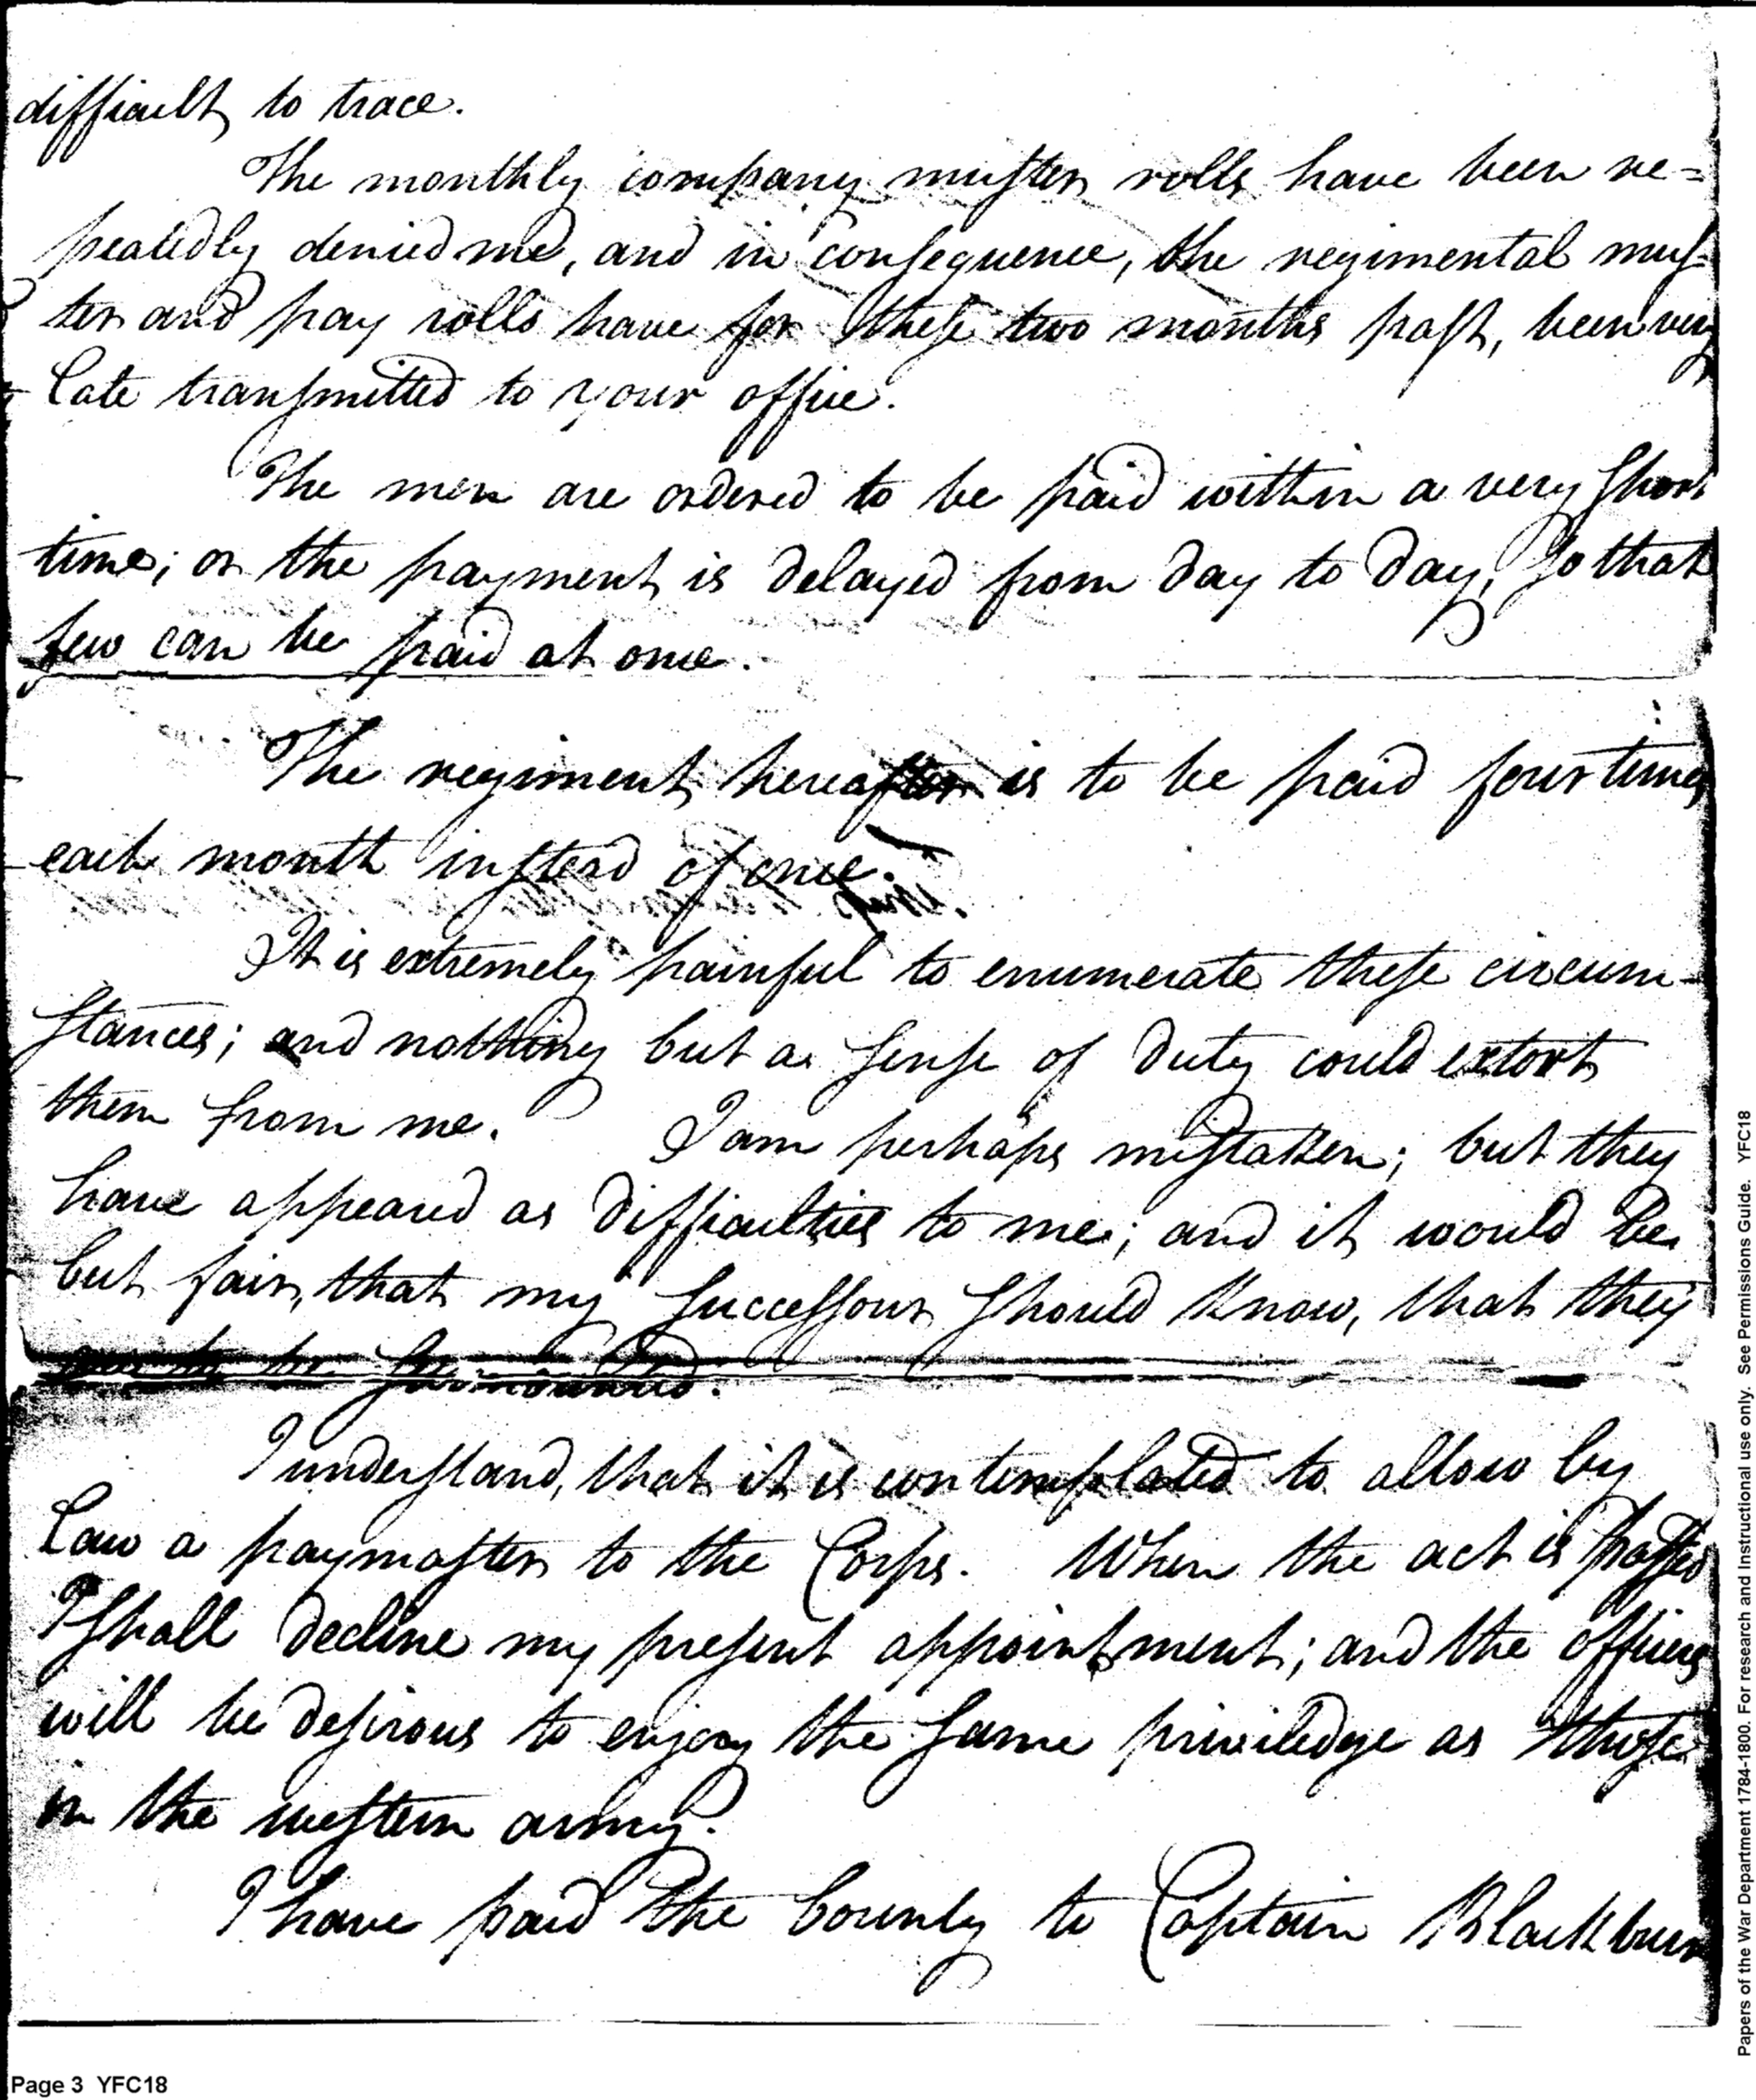 difficult to trace.
The monthly company muster rolls have been re=
peatedly denied me, and in consequence, the regimental mus-
ter and pay rolls have for these two months past, been very
late transmitted to your office.
The men are ordered to be paid within a very short
time; or the payment is delayed from day to day, so that
few can be paid at once.
The regiment hereafter is to be paid four times
each month instead of once.
It is extremely painful to enumerate these circum-
stances; and nothing but a sense of duty could extort
them from me. I am perhaps mistaken; but they
have appeared as difficulties to me; and it would be
but fair, that my successour should know, that they
are to be surmounted.
I understand, that it is contemplated to allow by
Law a paymaster to the Corps. When the act is passed
I shall decline my present appointment; and the officers
will be desirous to enjoy the same priviledge as those
in the western army.
I have paid the bounty to Captain Blackburn
Page 3 YFC18
Papers of the War Department 1784-1800. For research and Instructional use only. See Permissions Guide. YFC18